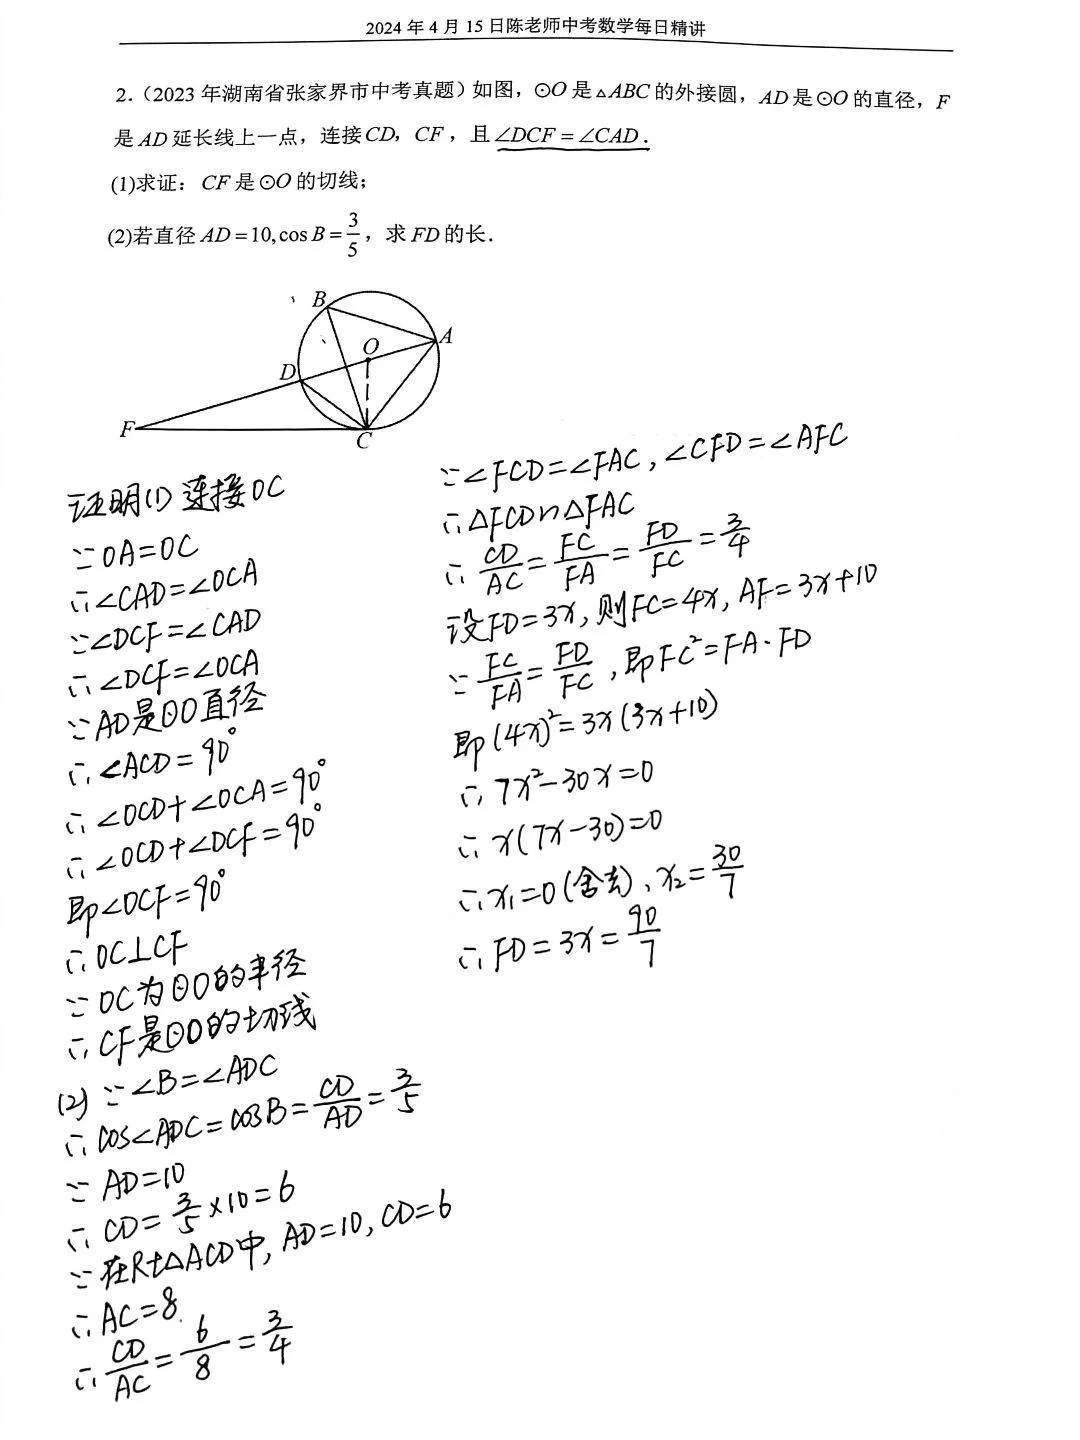 2024年4月15日陈老师中考数学每日精讲
2.（2023年湖南省张家界市中考真题）如图，⊙O是△ABC的外接圆，AD是⊙O的直径，F
是AD延长线上一点，连接CD，CF，且∠DCF=∠CAD．
(1)求证：CF是⊙O的切线；
(2)若直径AD=10,cos B=3/5，求FD的长．
B
A
O
D
F
C
证明(1) 连接OC
∵OA=OC
∴∠CAD=∠OCA
∵∠DCF=∠CAD
∴∠DCF=∠OCA
∵AD是⊙O直径
∴∠ACD=90°
∴∠OCD+∠OCA=90°
∴∠OCD+∠DCF=90°
即∠OCF=90°
∴OC⊥CF
∵OC为⊙O的半径
∴CF是⊙O的切线
(2) ∵∠B=∠ADC
∴cos∠ADC=cosB=CD/AD=3/5
∵AD=10
∴CD=3/5×10=6
∵在Rt△ACD中, AD=10, CD=6
∴AC=8
∴CD/AC=6/8=3/4
∵∠FCD=∠FAC, ∠CFD=∠AFC
∴△FCD∽△FAC
∴CD/AC=FC/FA=FD/FC=3/4
设FD=3x, 则FC=4x, AF=3x+10
∵FC/FA=FD/FC, 即FC²=FA·FD
即(4x)²=3x(3x+10)
∴7x²-30x=0
∴x(7x-30)=0
∴x₁=0(舍去), x₂=30/7
∴FD=3x=90/7